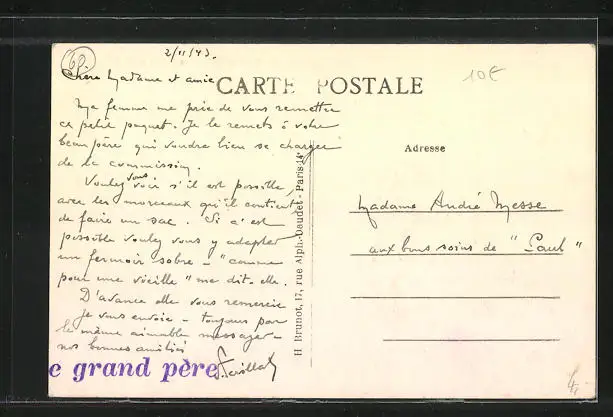 2/11/43.
Chère Madame et amie
CARTE POSTALE
10€
Ma femme me prie de vous remettre
ce petit paquet. Je le remets à votre
beau père qui voudra bien se charger
de la commission.
Voulez vous voir s'il est possible,
avec les morceaux qu'il contient,
de faire un sac. Si c'est
possible voulez vous y adapter
un fermoir sobre - "comme
pour une vieille" me dit-elle.
D'avance elle vous remercie
Je vous envoie - toujours par
le même aimable messager -
nos bonnes amitiés
e grand père
H Brunot, 17, rue Alph.-Daudet - Paris 14e
Adresse
Madame André Messe
aux bons soins de "Paul"